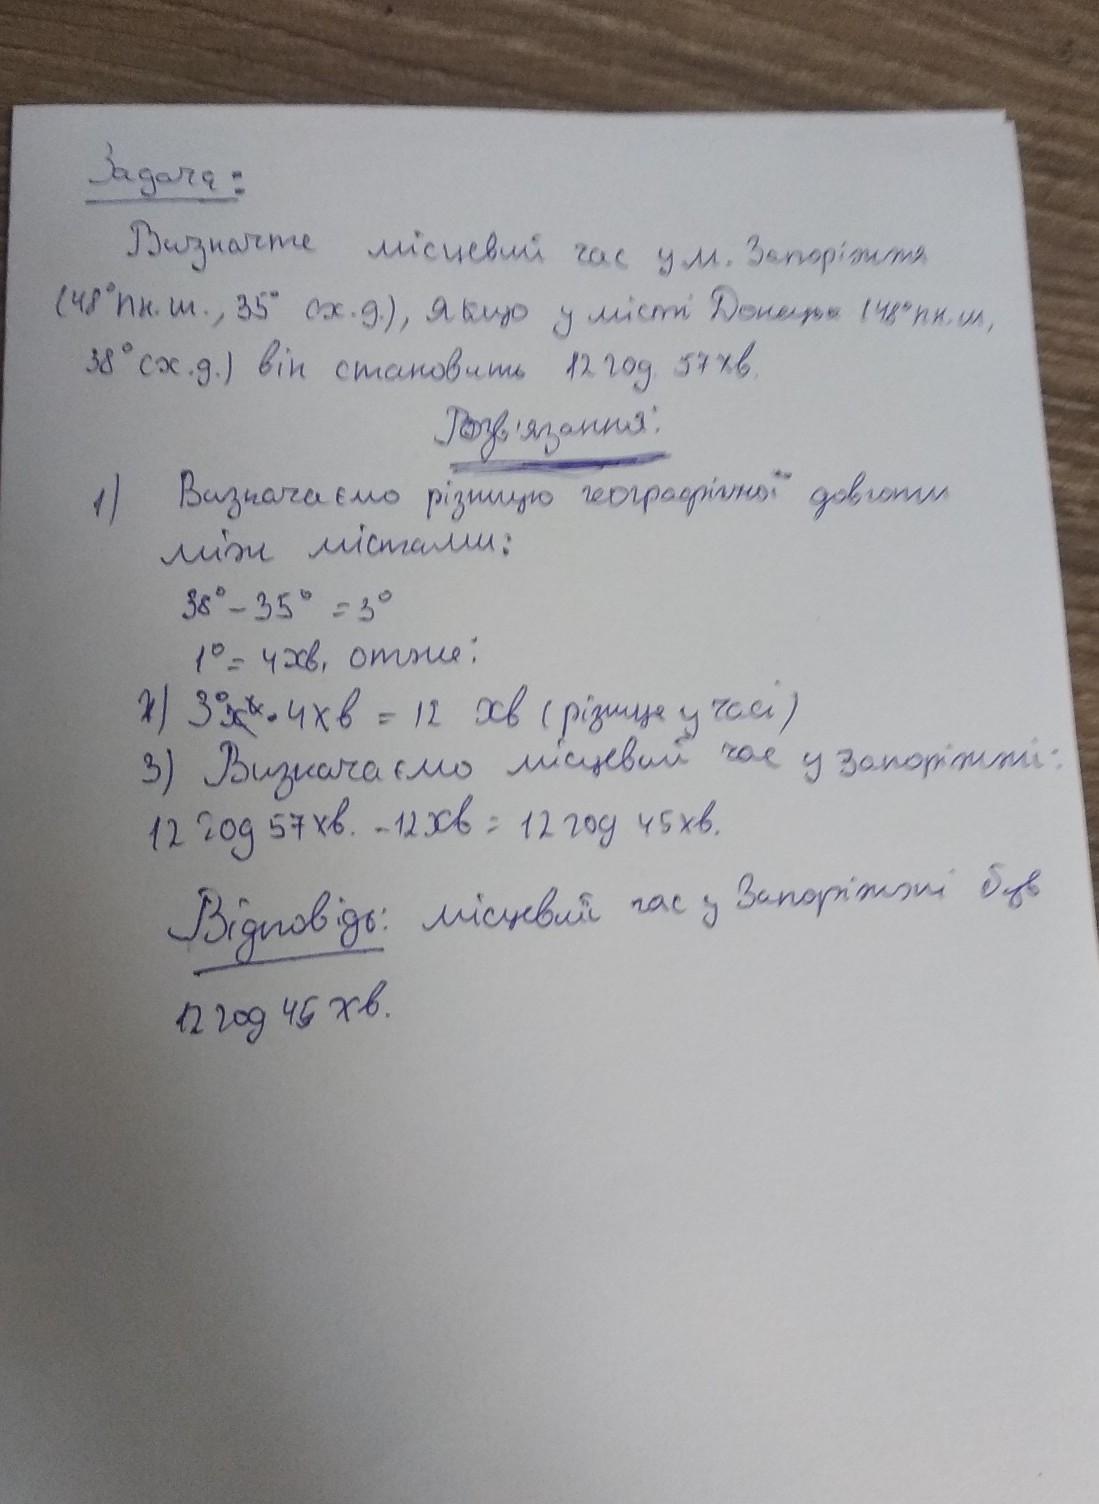 Задача:
Визначте місцевий час у м. Запоріжжя
(48° пн. ш., 35° сх. д.), якщо у місті Донецьк (48° пн. ш,
38° сх. д.) він становить 12 год. 57 хв.
Розв'язання:
1) Визначаємо різницю географічної довготи
між містами:
38° - 35° = 3°
1° = 4 хв, отже:
2) 3° · 4 хв = 12 хв (різниця у часі)
3) Визначаємо місцевий час у Запоріжжі:
12 год 57 хв. - 12 хв = 12 год 45 хв.
Відповідь: місцевий час у Запоріжжі був
12 год 45 хв.